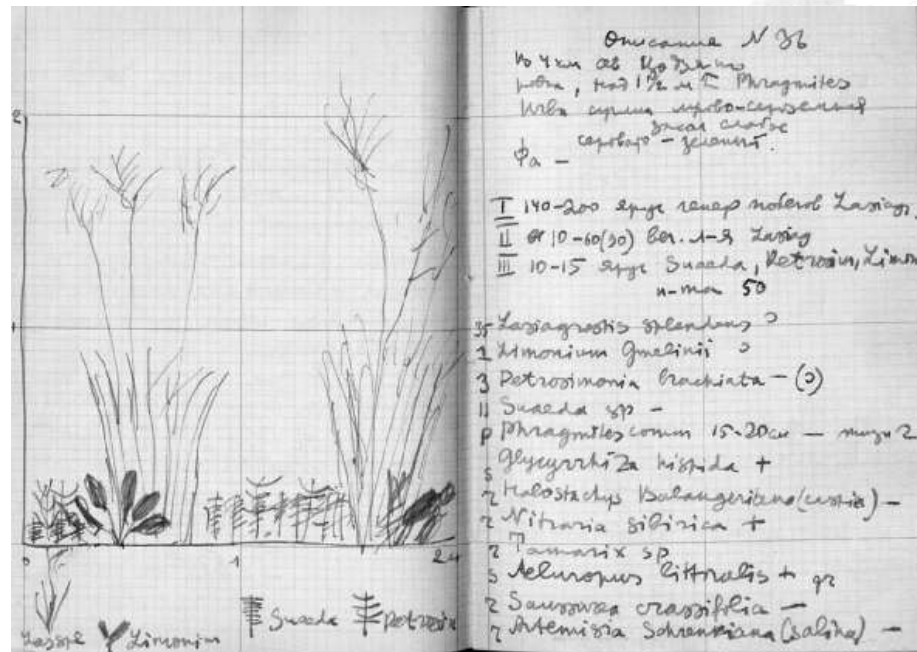 2
1
0 1 2м
Lasspl
Limonium
Suaeda
Petrosim
Описание N 36
ровн, над 1 1/2 м с Phragmites
серовато-зеленый.
Фа —
I 140-200 ярус генер побегов Lasiagr,
II от 10-60(90) вег. л-я Lasiag
III 10-15 ярус Suaeda, Petrosim, Limon
50
35 Lasiagrostis splendens Ɔ
1 Limonium Gmelinii Ɔ
3 Petrosimonia brachiata — (Ɔ)
11 Suaeda sp —
p Phragmites comm 15-20 см —
s Glycyrrhiza hispida +
r Halostachys Belangeriana (caspia) —
r Nitraria sibirica +
r Tamarix sp
s Aeluropus littoralis + gr
r Saussurea crassifolia —
r Artemisia Schrenkiana (salina) —